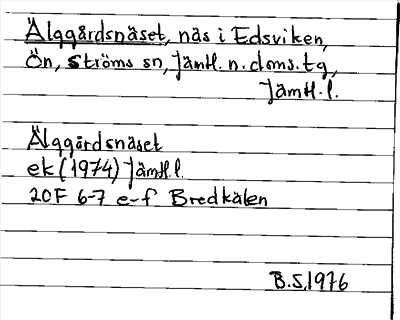 Älggårdsnäset, näs i Edsviken,
Ön, Ströms sn, Jämtl. n. doms. tg,
Jämtl. l.
Älggårdsnäset
ek (1974) Jämtl. l.
20F 6-7 e-f Bredkälen
B.S. 1976